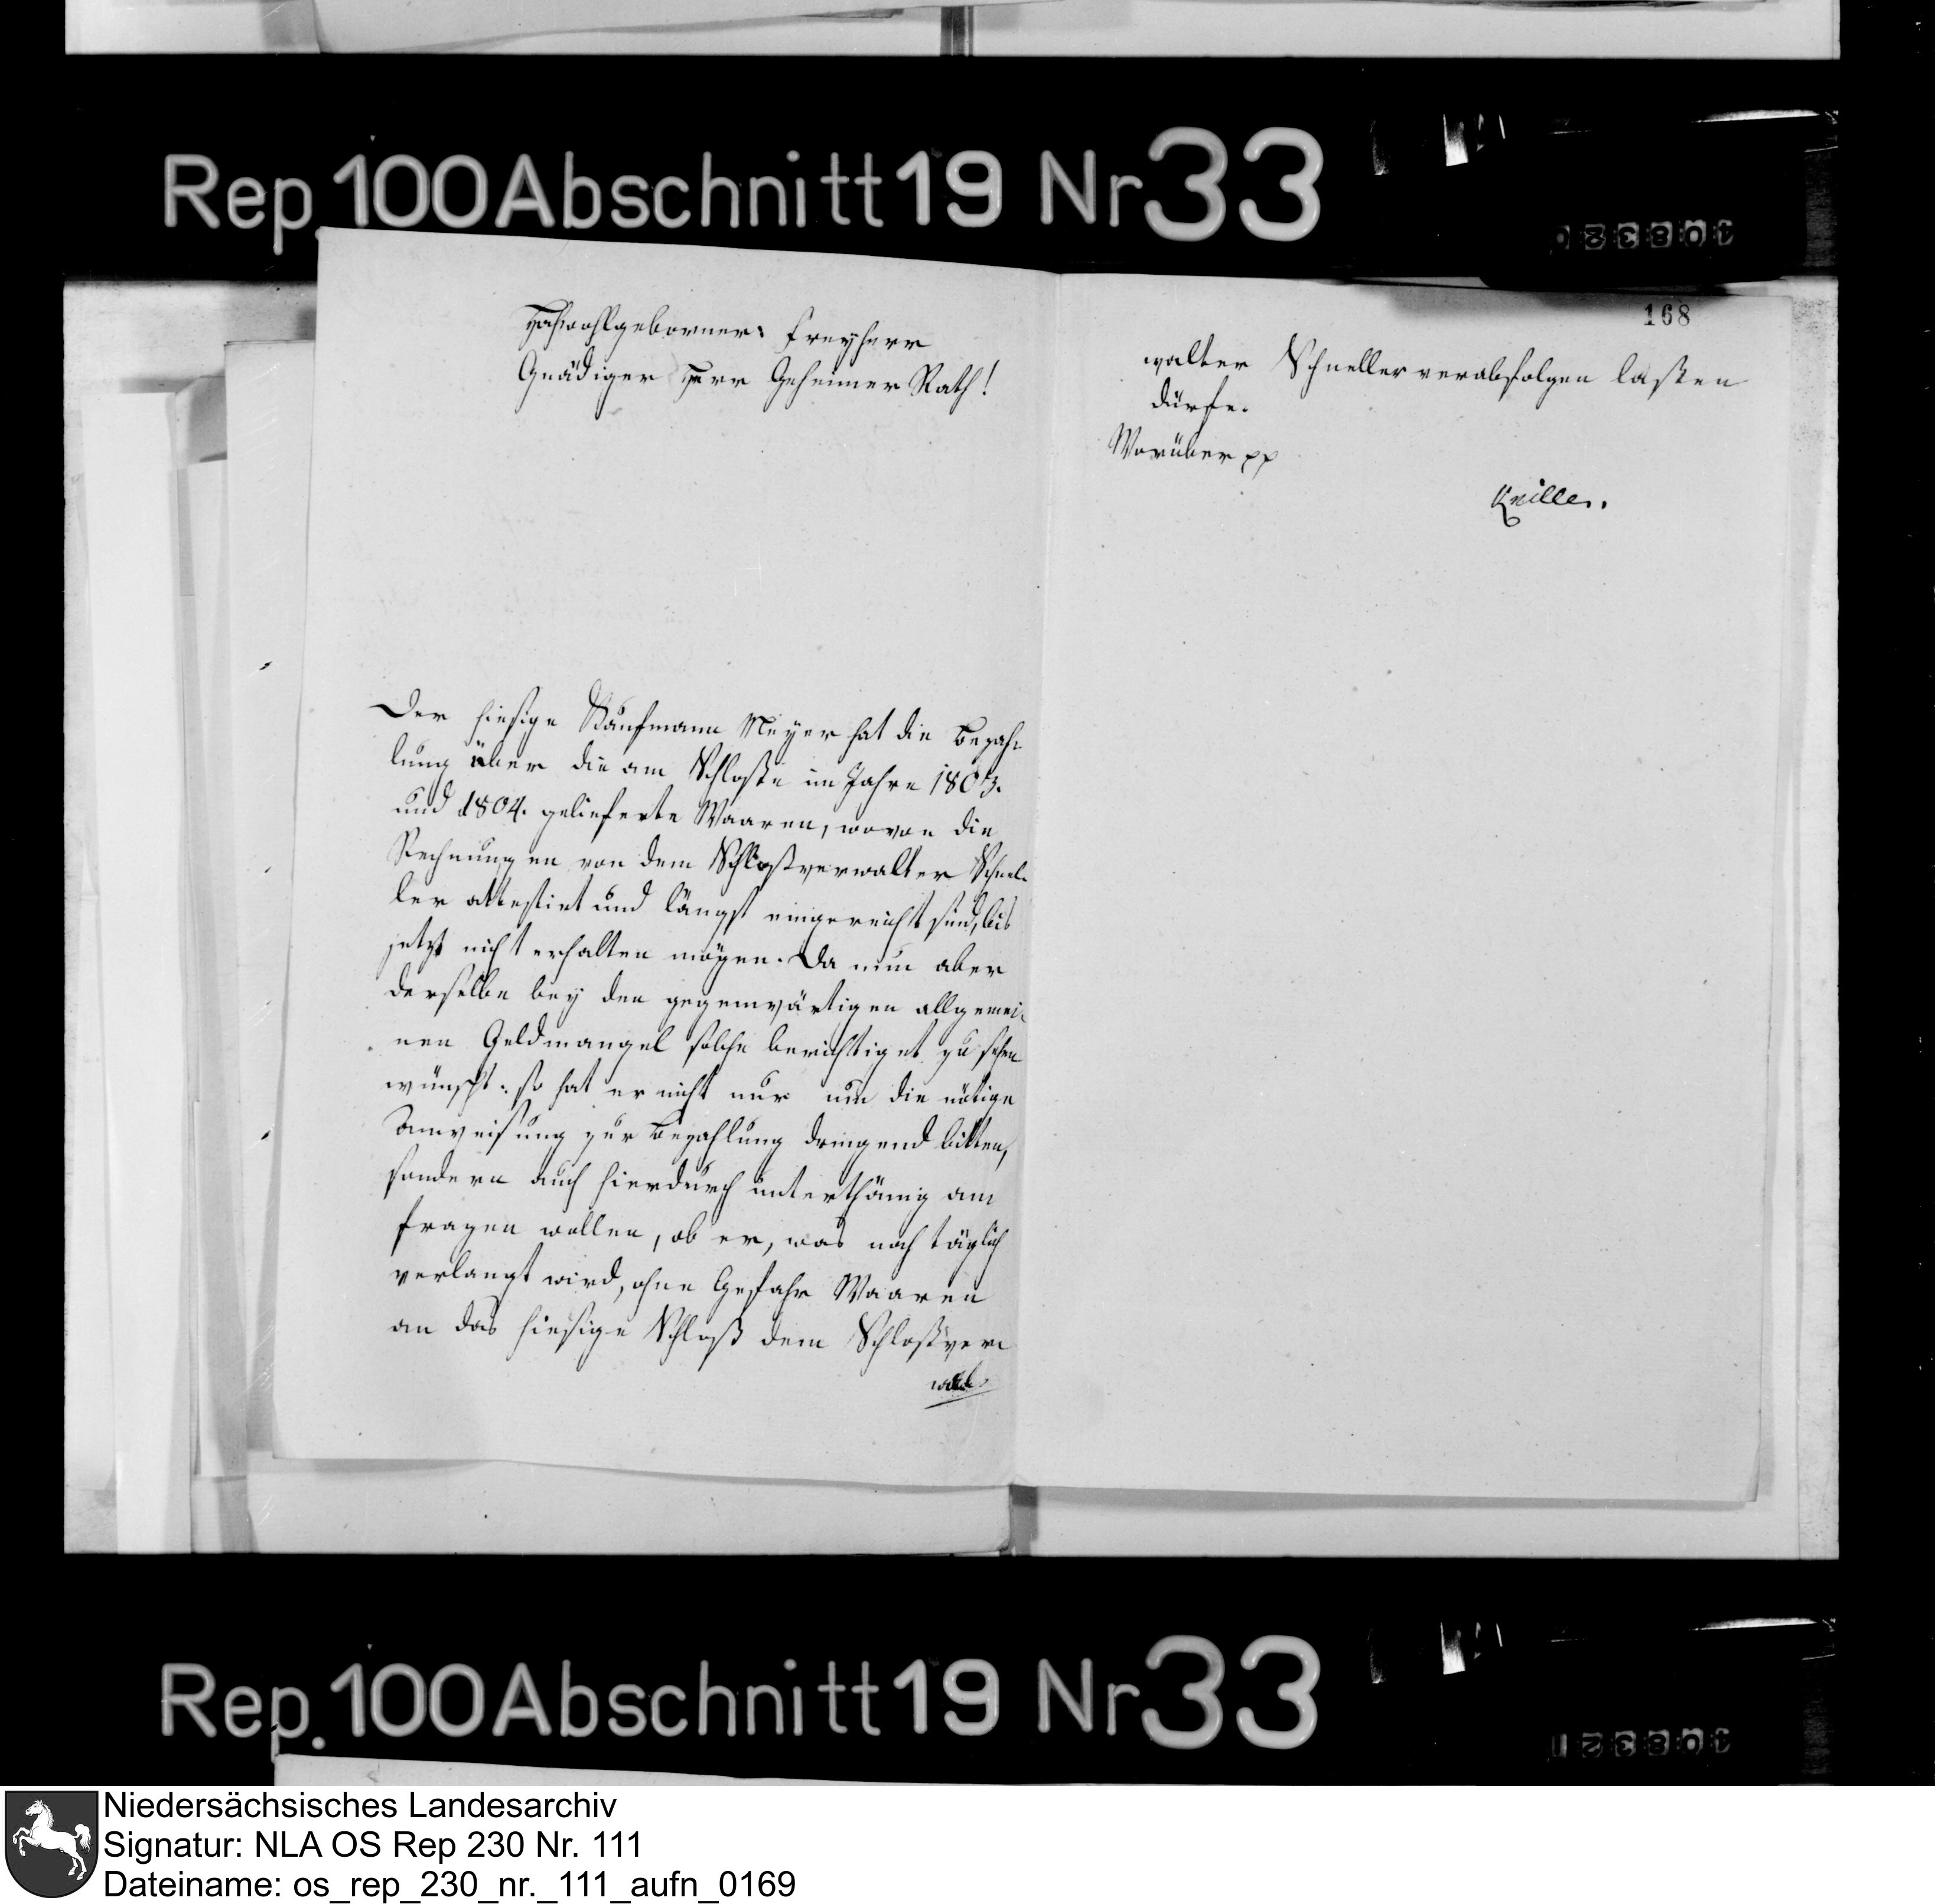 Rep. 100 Abschnitt 19 Nr 33
Hochwohlgeborner: Freyherr
Gnädiger Herr Geheimer Rath!
Der hiesige Kaufmann Meyer hat die Bezah-
lung über die am Schloße im Jahre 1803.
und 1804. gelieferte Waaren, wovon die
Rechnungen von dem Schloßverwalter Schnel-
ler attestirt und längst eingereicht sind, bis
jetzt nicht erhalten mögen. Da nun aber
derselbe bey den gegenwärtigen allgemei-
nen Geldmangel solche berichtiget zu sehen
wünscht: so hat er nicht nur um die nötige
Anweisung zur Bezahlung dringend bitten,
sondern auch hierdurch unterthänig an-
fragen wollen, ob er, was noch täglich
verlangt wird, ohne Gefahr Waaren
an das hiesige Schloß dem Schloßver-
wal-
168
walter Schneller verabfolgen laßen
dürfe.
Worüber pp
Knille.
Rep. 100 Abschnitt 19 Nr 33
Niedersächsisches Landesarchiv
Signatur: NLA OS Rep 230 Nr. 111
Dateiname: os_rep_230_nr._111_aufn_0169